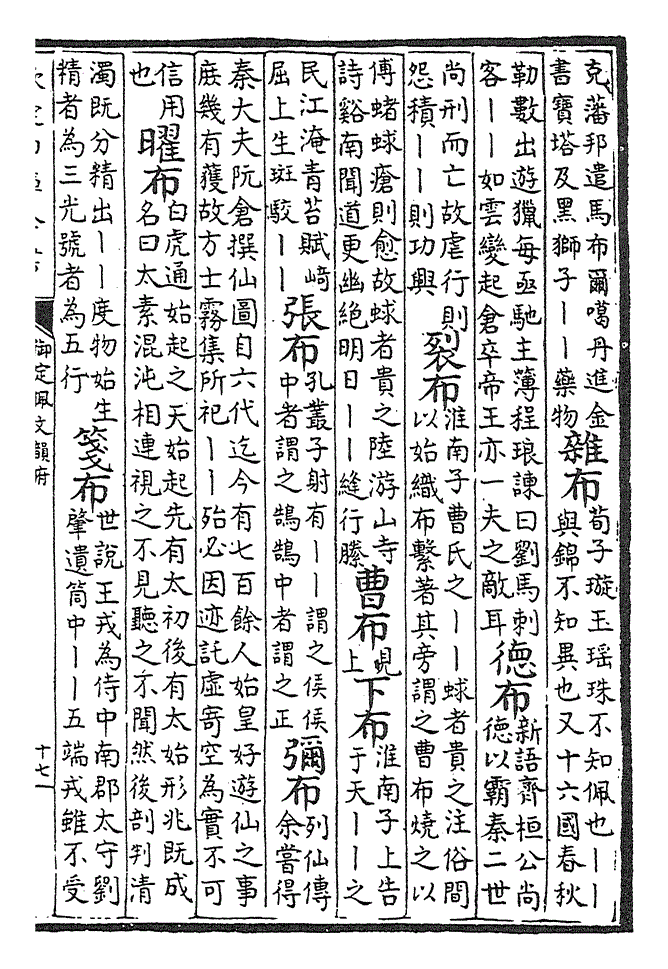 克藩邦遣馬布爾噶丹進金
書寶塔及黑獅子丨丨藥物
雜布
荀子璇玉瑶珠不知佩也丨丨
與錦不知異也又十六國春秋
勒數出遊獵每亟馳主薄程琅諫曰劉馬刺
客丨丨如雲變起倉卒帝王亦一夫之敵耳
德布
新語齊桓公尚
德以霸秦二世
尚刑而亡故虐行則
怨積丨丨則功興
裂布
淮南子曹氏之丨丨蛷者貴之注俗間
以始織布繫著其旁謂之曹布燒之以
傅蝫蛷瘡則愈故蛷者貴之陸游山寺
詩谿南聞道更幽絶明日丨丨縫行縢
曹布
見
上
下布
淮南子上告
于天丨丨之
民江淹青苔賦崎
屈上生斑駮丨丨
張布
孔叢子射有丨丨謂之侯侯
中者謂之鵠鵠中者謂之正
彌布
列仙傳
余嘗得
秦大夫阮倉撰仙圖自六代迄今有七百餘人始皇好遊仙之事
庻幾有獲故方士霧集所祀丨丨殆必因迹託虛寄空為實不可
信用
也
曜布
白虎通始起之天始起先有太初後有太始形兆既成
名曰太素混沌相連視之不見聽之不聞然後剖判清
濁既分精出丨丨度物始生
精者為三光號者為五行
箋布
世說王戎為侍中南郡太守劉
肇遺筒中丨丨五端戎雖不受
御定佩文韻府
十七